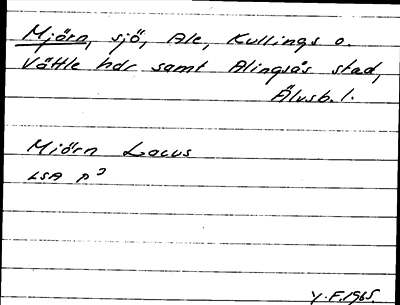 Mjörn, sjö, Ale, Kullings o.
Vättle hdr samt Alingsås stad,
Älvsb. l.
Miörn Lacus
LSA P3
Y.F. 1965.